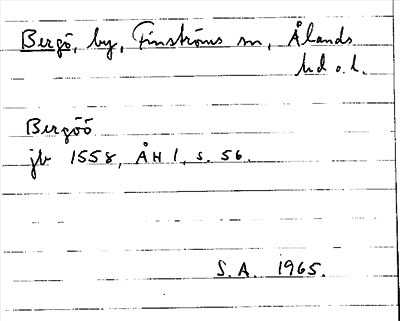 Bergö, by, Finströms sn, Ålands
hd o. l.
Bergöö
jb 1558, ÅH 1, s. 56.
S.A. 1965.